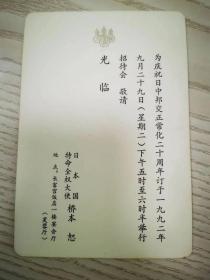 为庆祝日中邦交正常化二十周年订于一九九二年
九月二十九日（星期二）下午五时至六时半举行
招待会 敬请
光临
日本国
特命全权大使 桥本 恕
地点：长富宫饭店一楼宴会厅
（芙蓉厅）